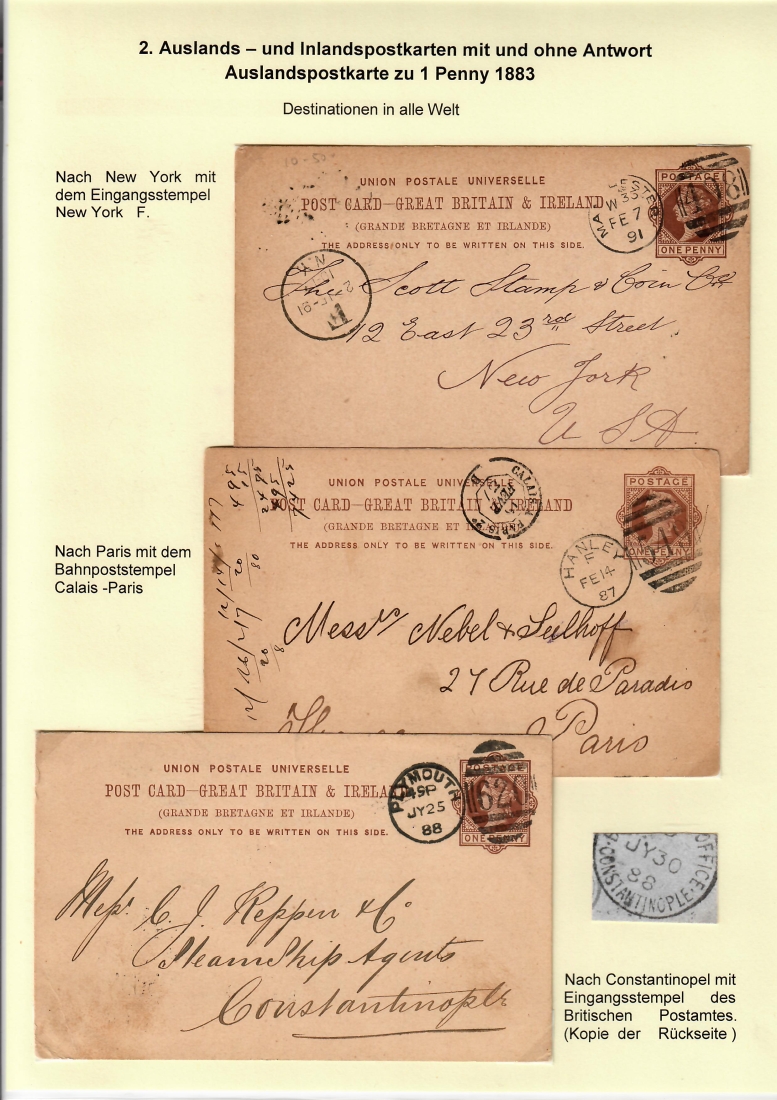 2. Auslands – und Inlandspostkarten mit und ohne Antwort
Auslandspostkarte zu 1 Penny 1883
Destinationen in alle Welt
Nach New York mit
dem Eingangsstempel
New York F.
10-50
UNION POSTALE UNIVERSELLE
POST CARD–GREAT BRITAIN & IRELAND
(GRANDE BRETAGNE ET IRLANDE)
THE ADDRESS ONLY TO BE WRITTEN ON THIS SIDE.
POSTAGE
ONE PENNY
MA ESTER
W 33
FE 7
91
498
N.Y.
2
91
F
The Scott Stamp & Coin Co
12 East 23rd Street
New York
U S A
Nach Paris mit dem
Bahnpoststempel
Calais -Paris
UNION POSTALE UNIVERSELLE
POST CARD–GREAT BRITAIN & IRELAND
(GRANDE BRETAGNE ET IRLANDE)
THE ADDRESS ONLY TO BE WRITTEN ON THIS SIDE.
POSTAGE
ONE PENNY
CALAIS A PARIS
HANLEY
F
FE 14
87
495
2495
Messrs Nebel & Seelhoff
27 Rue de Paradis
Paris
UNION POSTALE UNIVERSELLE
POST CARD–GREAT BRITAIN & IRELA
(GRANDE BRETAGNE ET IRLANDE)
THE ADDRESS ONLY TO BE WRITTEN ON THIS SIDE.
POSTAGE
ONE PENNY
PLYMOUTH
45P
JY 25
88
62
Messrs C. J. Keppen & Co
Steam Ship Agents
Constantinople
OFFICE
JY 30
88
CONSTANTINOPLE
Nach Constantinopel mit
Eingangsstempel des
Britischen Postamtes.
(Kopie der Rückseite )